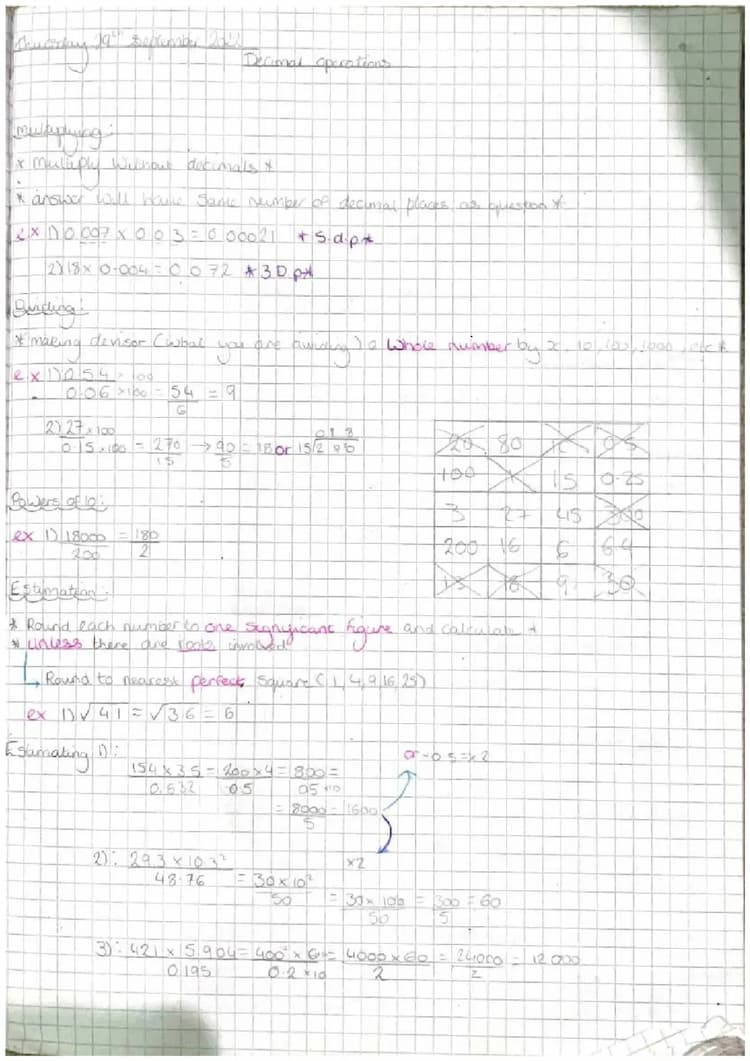 Thursday 29th September 2022
Decimal operations
Multiplying:
* multiply without decimals *
* answer will have same number of decimal places as question *
ex 1) 0.007 × 0.03 = 0.00021 * 5.d.p *
2) 18 × 0.004 = 0.072 * 3 D.p *
Dividing:
* making devisor (what you are dividing) a whole number by x 10, 100, 1000, etc *
ex 1) 0.54 × 100
0.06 × 100 = 54/6 = 9
2) 27 × 100
0.15 × 100 = 270/15 → 90/5 = 18 or 15
20 80 0.5
100 15 0.25
3 27 45
200 16 6 64
9 30
Powers of 10:
ex 1) 18000/200 = 180/2
Estimation:
* Round each number to one significant figure and calculate *
* unless there are roots involved
Round to nearest perfect square (1, 4, 9, 16, 25)
ex 1) √41 ≈ √36 = 6
Estamating 1):
154 × 3.5 = 200 × 4 = 800 =
0.532 0.5 0.5 ×10
or ÷0.5 = ×2
= 8000/5 = 1600
×2
2): 29.3 × 10.3² = 30 × 10²
48.76 50
= 30 × 100/50 = 300/5 = 60
3): 421 × 15.904 = 400 × = 4000 × 60 = 24000 = 12000
0.195 0.2 ×10 2 2